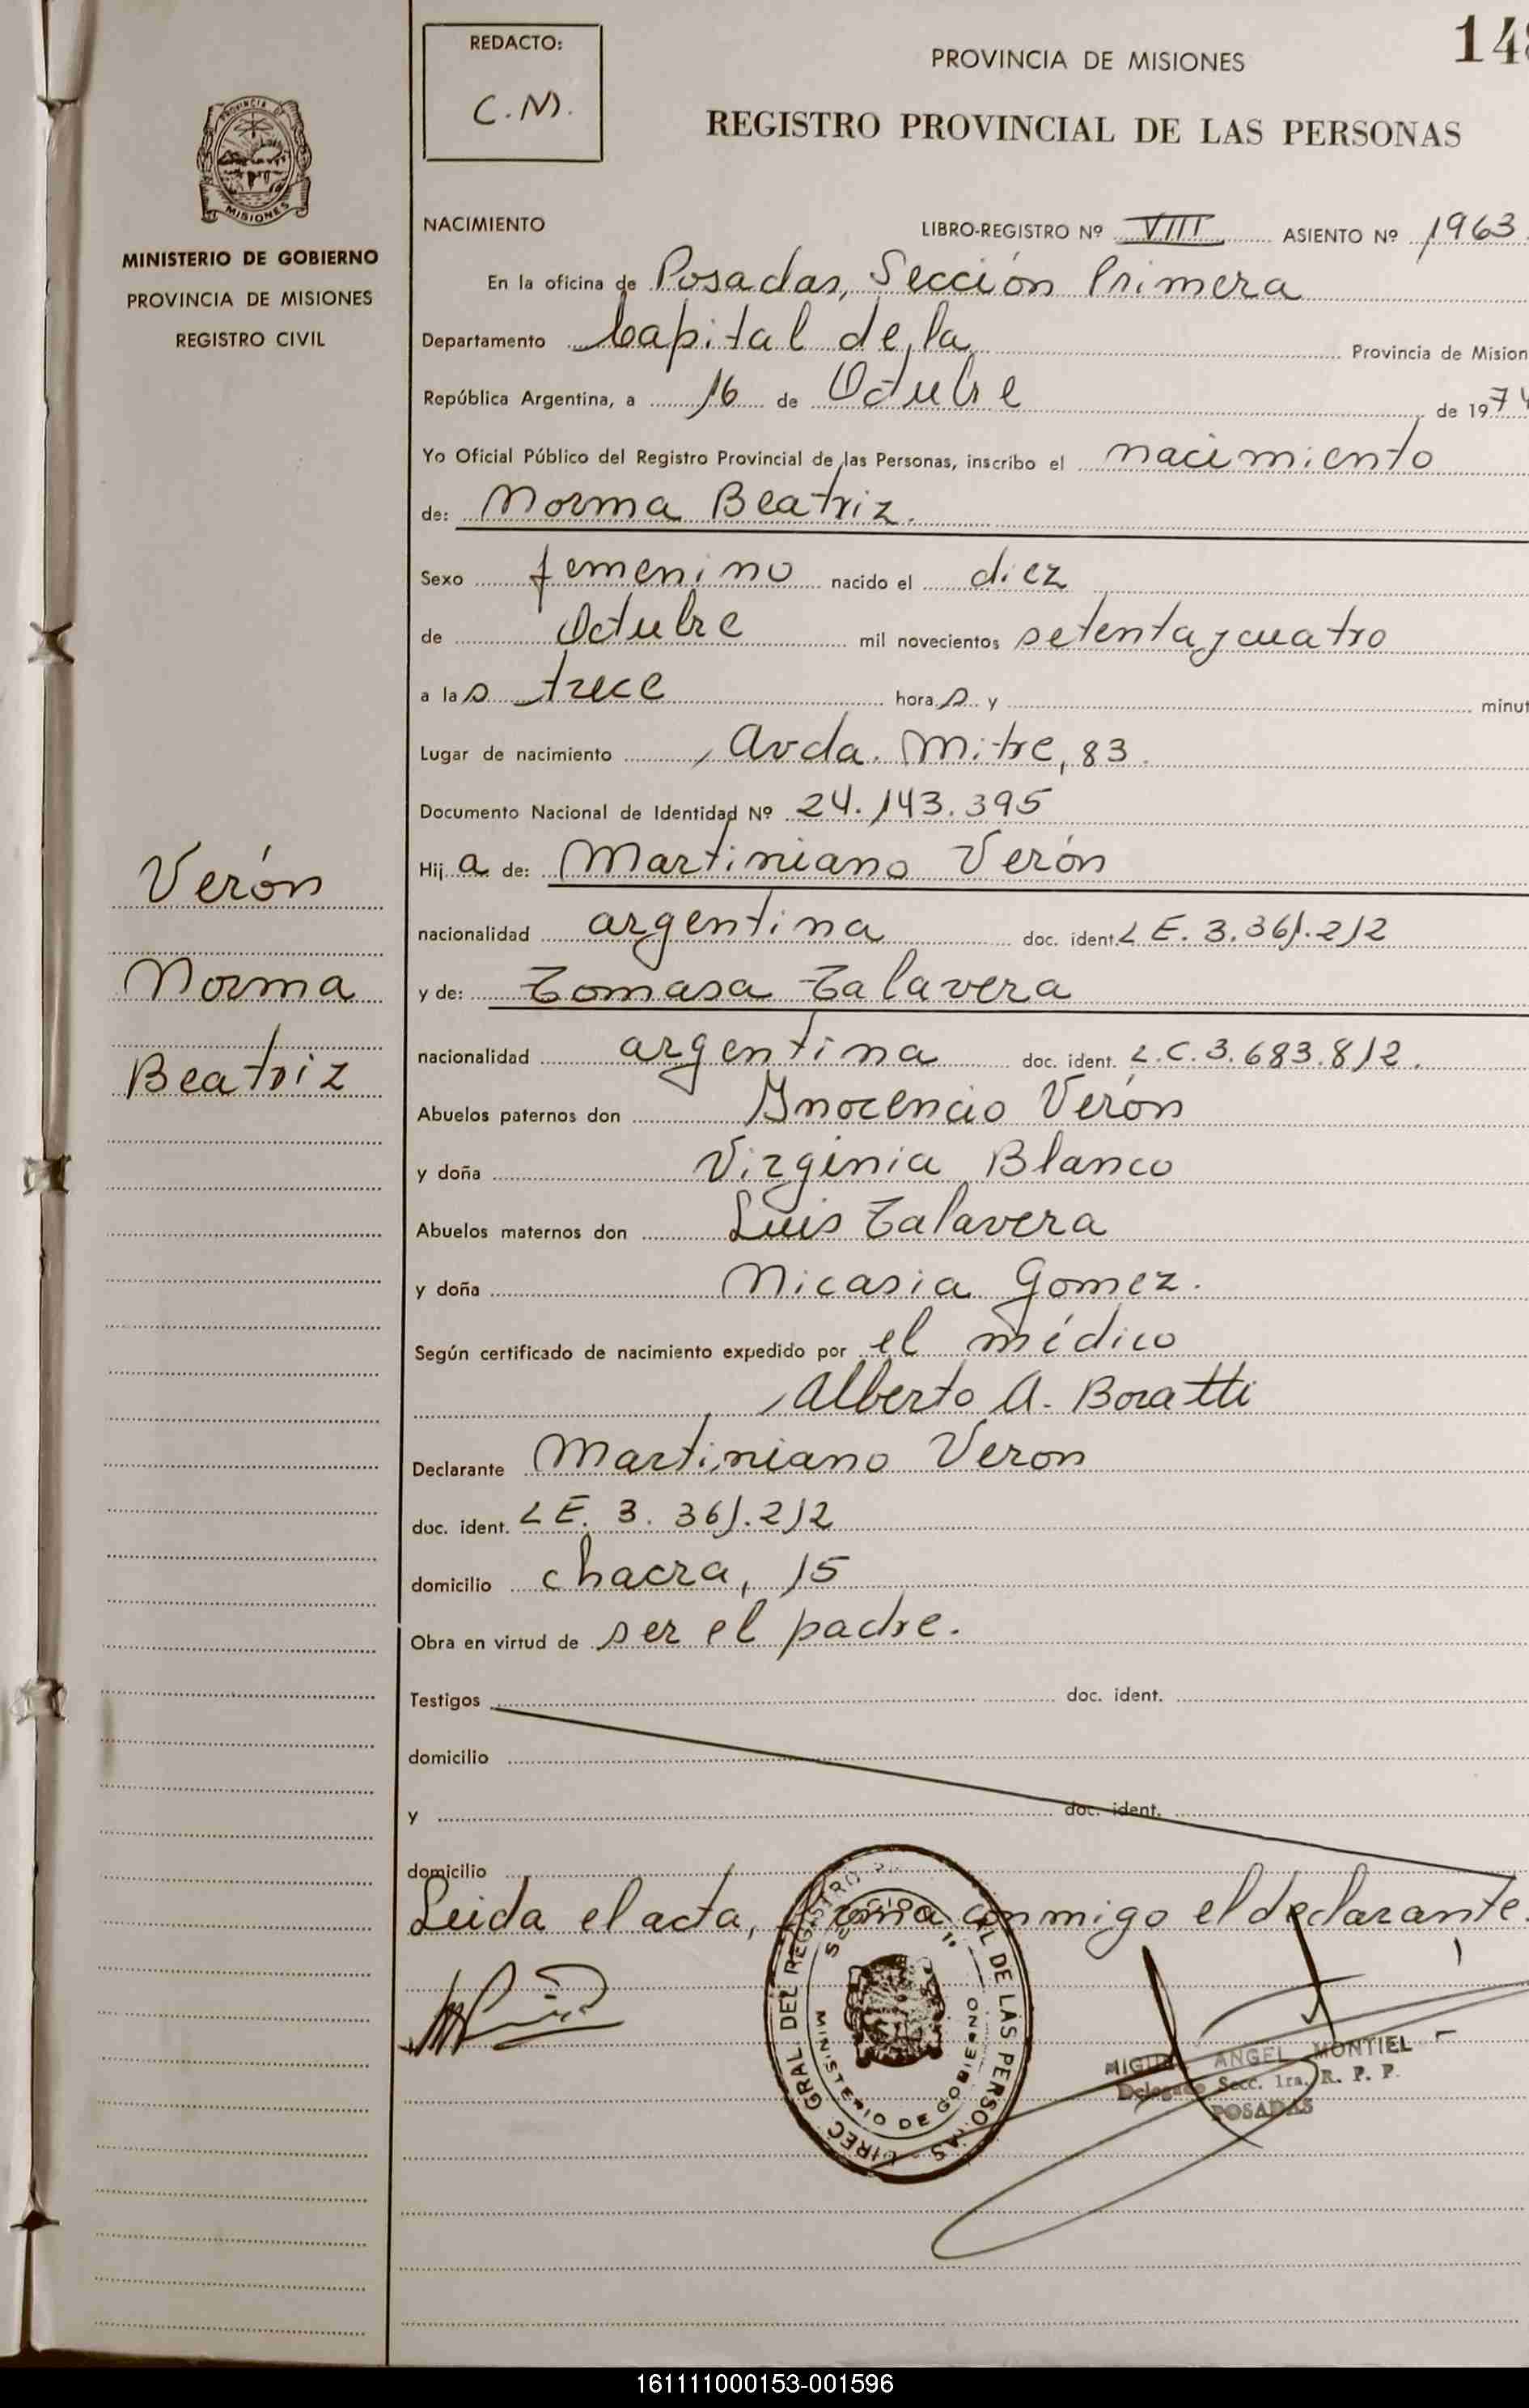 REDACTO:
C.M.
PROVINCIA DE MISIONES
148
REGISTRO PROVINCIAL DE LAS PERSONAS
PROVINCIA DE
MISIONES
MINISTERIO DE GOBIERNO
PROVINCIA DE MISIONES
REGISTRO CIVIL
NACIMIENTO LIBRO-REGISTRO Nº VIII ASIENTO Nº 1963
En la oficina de Posadas, Sección Primera
Departamento Capital de la Provincia de Mision
República Argentina, a 16 de Octubre de 1974
Yo Oficial Público del Registro Provincial de las Personas, inscribo el nacimiento
de: Norma Beatriz.
Sexo femenino nacido el diez
de Octubre mil novecientos setenta y cuatro
a las trece horas y minut
Lugar de nacimiento Avda. Mitre, 83.
Documento Nacional de Identidad Nº 24.143.395
Hija de: Martiniano Verón
nacionalidad argentina doc. ident. L E. 3.361.212
y de: Tomasa Talavera
nacionalidad argentina doc. ident. L.C. 3.683.812.
Abuelos paternos don Inocencio Verón
y doña Virginia Blanco
Abuelos maternos don Luis Talavera
y doña Nicasia Gomez.
Según certificado de nacimiento expedido por el médico
Alberto A. Boratti
Declarante Martiniano Veron
doc. ident. L E. 3. 361.212
domicilio chacra, 15
Obra en virtud de ser el padre.
Testigos doc. ident.
domicilio
y doc. ident.
domicilio
Leida el acta, firma conmigo el declarante.
Verón
Norma
Beatriz
DIREC. GRAL. DEL REGISTRO DE LAS PERSONAS
SECCION 1ª
MINISTERIO DE GOBIERNO
MIGUEL ANGEL MONTIEL
Delegado Secc. 1ra. R. P. P.
POSADAS
161111000153-001596